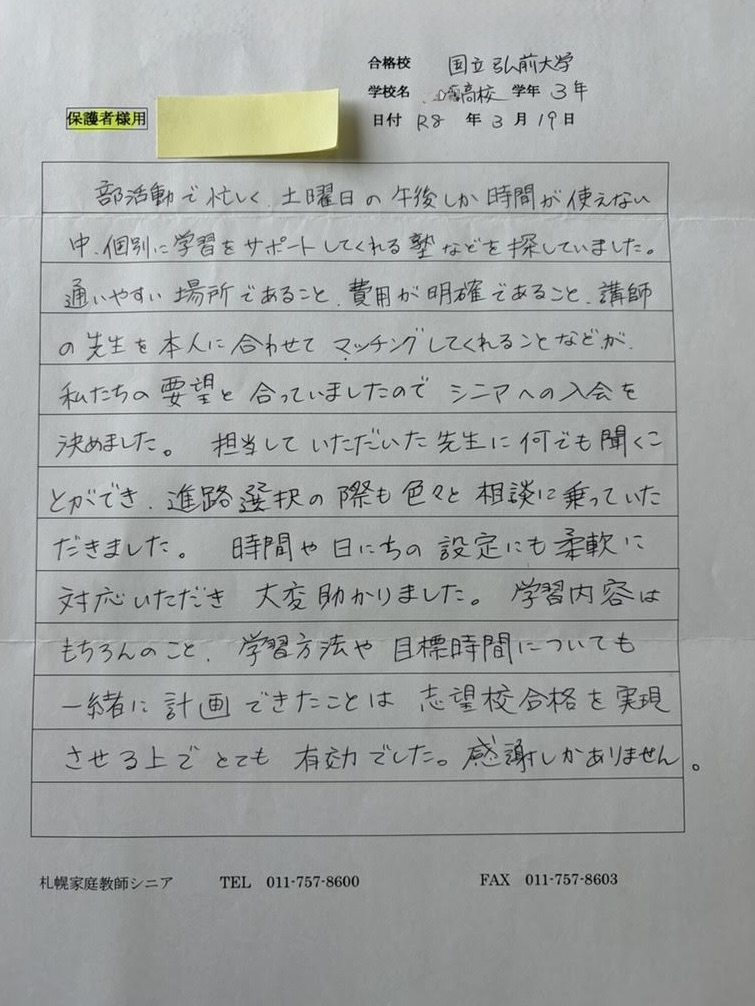 合格校 国立弘前大学
学校名 高校 学年 3年
保護者様用
日付 R8 年 3 月 19 日
部活動で忙しく、土曜日の午後しか時間が使えない
中、個別に学習をサポートしてくれる塾などを探していました。
通いやすい場所であること、費用が明確であること、講師
の先生を本人に合わせてマッチングしてくれることなどが、
私たちの要望と合っていましたのでシニアへの入会を
決めました。 担当していただいた先生に何でも聞くこ
とができ、進路選択の際も色々と相談に乗っていた
だきました。 時間や日にちの設定にも柔軟に
対応いただき 大変助かりました。 学習内容は
もちろんのこと、学習方法や目標時間についても
一緒に計画できたことは志望校合格を実現
させる上でとても有効でした。感謝しかありません。
札幌家庭教師シニア TEL 011-757-8600 FAX 011-757-8603